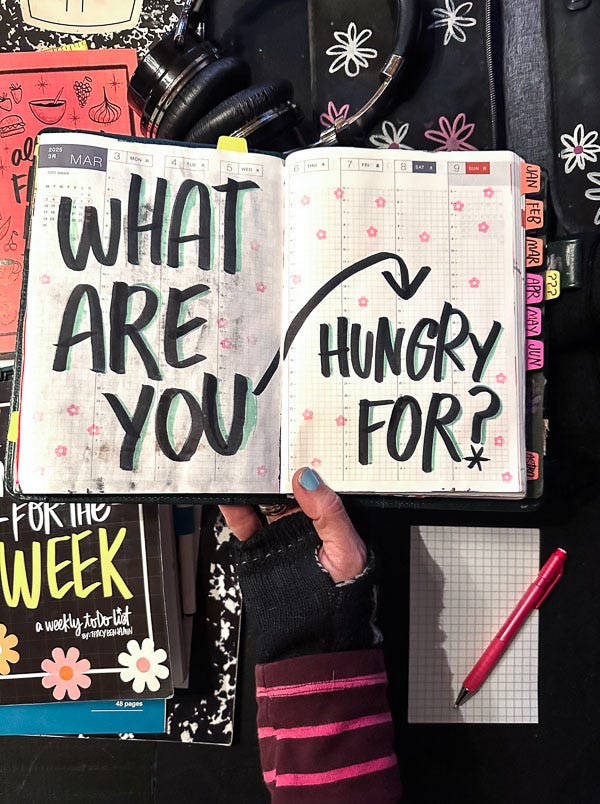 2025
3月 MAR
3 MON
4 TUE
5 WED
6 THU
7 FRI
8 SAT
9 SUN
WHAT
ARE
YOU
HUNGRY
FOR?*
JAN
FEB
MAR
APR
???
MAY
JUN
FOR THE
WEEK
a weekly to do list
48 pages